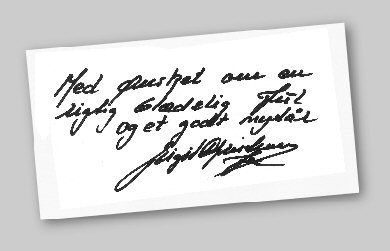 Med ønsket om en
rigtig glædelig Jul
og et godt nytår